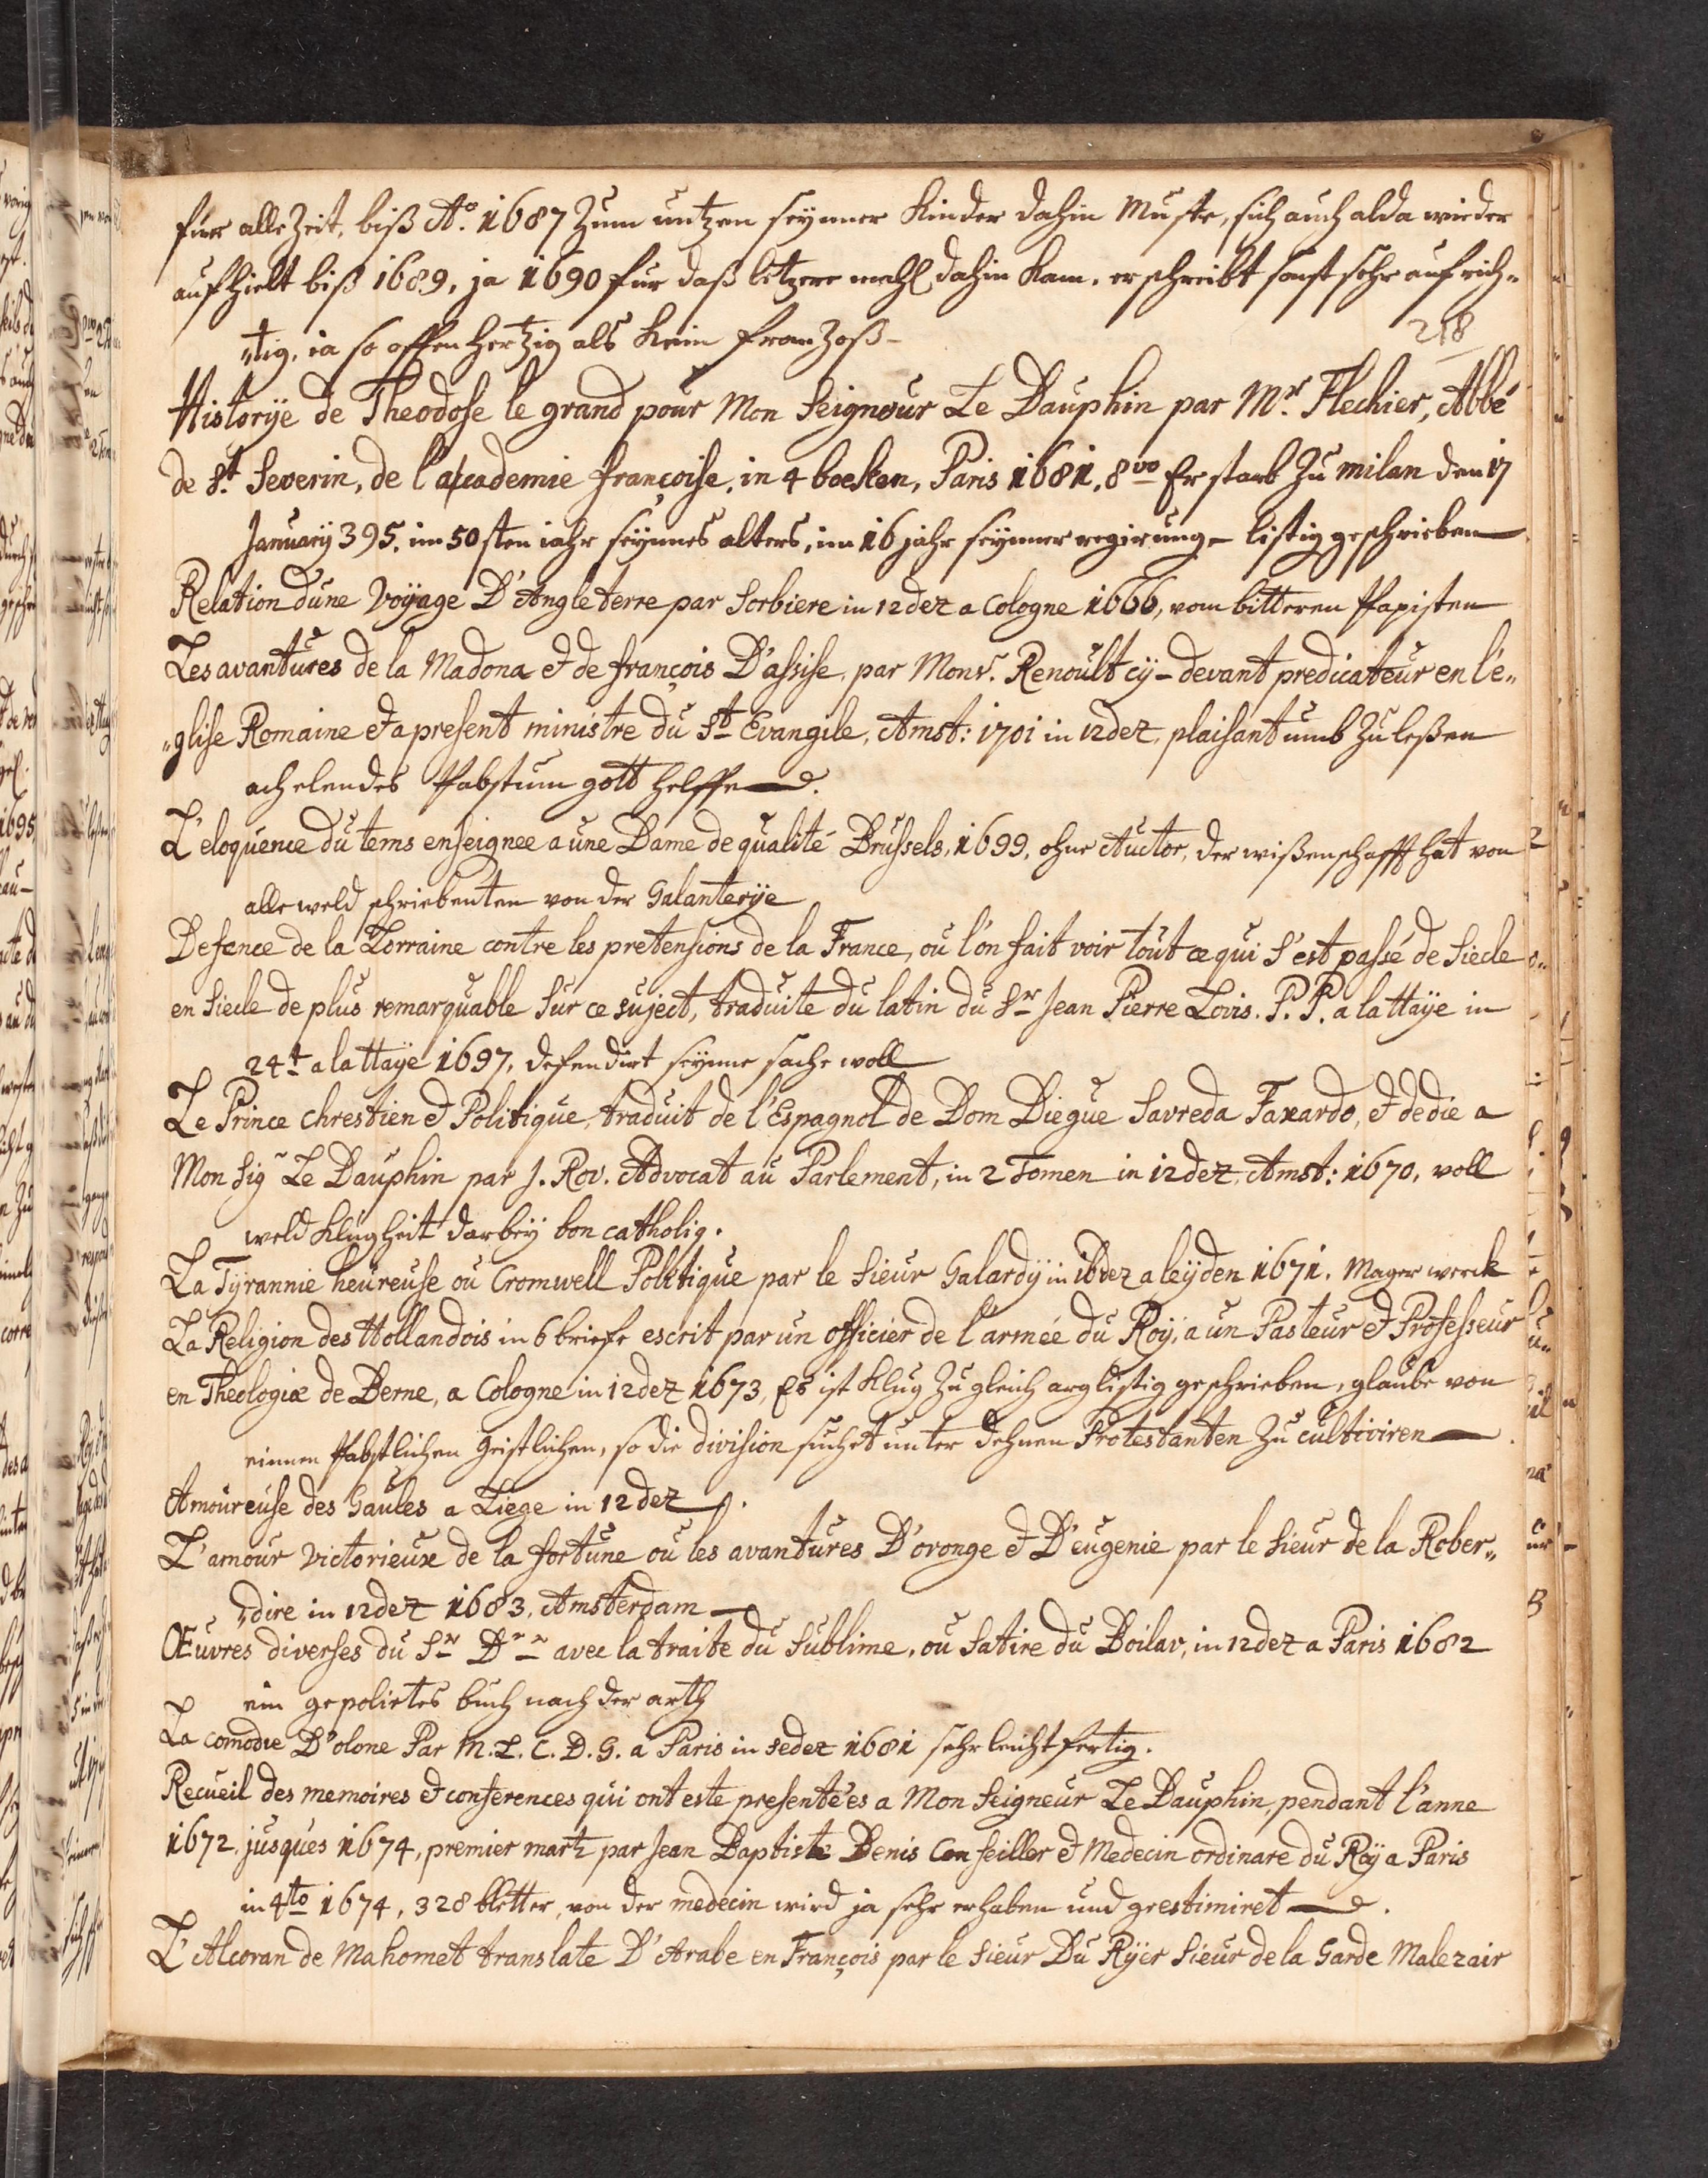 für alle Zeit, biß Aº. 1687 Zum nutzen seynner Kinder dahin muste, sich auch alda wieder
auf hielt biß 1689, ja 1690 fur daß letzere mahl dahin kam. er schreibt sonst sehr aufrich„
„tig, ia so offen hertzig als kein franzoß –
218
Historÿe de Theodose le grand pour Mon Seigneur Le Dauphin par Mr. Flechier, Abbé
de St. Severin, de l'academie françoise, in 4 boeken, Paris 1681, 8vo Er starb Zu milan den 17
Januarÿ 395. im 50sten iahr seynnes alters, im 16 jahr seynner regirung – listig geschrieben
Relation dune Voÿage D'Angleterre par Sorbiere in 12dez a Cologne 1666, vom bitteren Papisten
Les avantures de la Madona et de françois D'assise, par Monsr. Renoult cÿ-devant predicateur en l'e„
„glise Romaine et a present ministre du St Evangile, Amst: 1701 in 12dez, plaisant umb Zu leßen
ach elendes Pabstum gott helffe
L'eloquence du tems enseignee a une Dame de qualité Brussels, 1699, ohne Auctor, der wißenschafft hat von
alle weld schriebenten von der Galanterÿe
Defence de la Lorraine contre les pretensions de la France, ou l'on fait voir tout ce qui s'est passé de Siecle
en Siecle de plus remarquable sur ce suject, traduite du latin du Sr Jean Pierre Lovis. P. P. a la Haÿe in
24t a la Haÿe 1697, defendirt seynne sache woll
Le Prince chrestien et Politique, traduit de l'Espagnol de Dom Diegue Savreda Faxardo, et dedie a
Mon Sigr Le Dauphin par J. Rov. Advocat au Parlement, in 2 Tomen in 12dez, Amst: 1670, voll
weld Klugheit darbeÿ bon catholiq.
La Tÿrannie heureuse ou Cromwell Politique par le Sieur Galardÿ in 16dez a leÿden 1671. Mager werck
La Religion des Hollandois in 6 briefe escrit par un officier de l'armée du Roÿ, a un Pasteur et Professeur
en Theologiæ de Berne, a Cologne in 12dez 1673, Es ist klug Zu gleich arglistig geschrieben, glaube von
einnen Pabstlichen geistlichen, so die division suchet unter dehnen Protestanten Zu cultiviren
Amoureuse des Gaules a Liege in 12dez
L'amour Victorieux de la fortune ou les avantures D'oronge et D'eugenie par le Sieur de la Rober„
„dire in 12dez 1683, Amsterdam
Œuvres diverses du Sr D avec la traite du Sublime, ou Satire du Boilav, in 12dez a Paris 1682
ein gepolietes buch nach der arth
La comodie D'olone Par M. L. C. D. G. a Paris in sedez 1681 sehr leichtfertig.
Recueil des memoires et conferences qui ont este presentées a Mon Seigneur Le Dauphin, pendant l'anne
1672, jusques 1674, premier martz par Jean Baptiste Denis Conseiller et Medecin ordinare du Roÿ a Paris
in 4to 1674, 328 bletter, von der medecin wird ja sehr erhaben und geestimiret
L'Alcoran de Mahomet translate D'Arabe en François par le Sieur Du Rÿer Sieur de la Garde Malezair